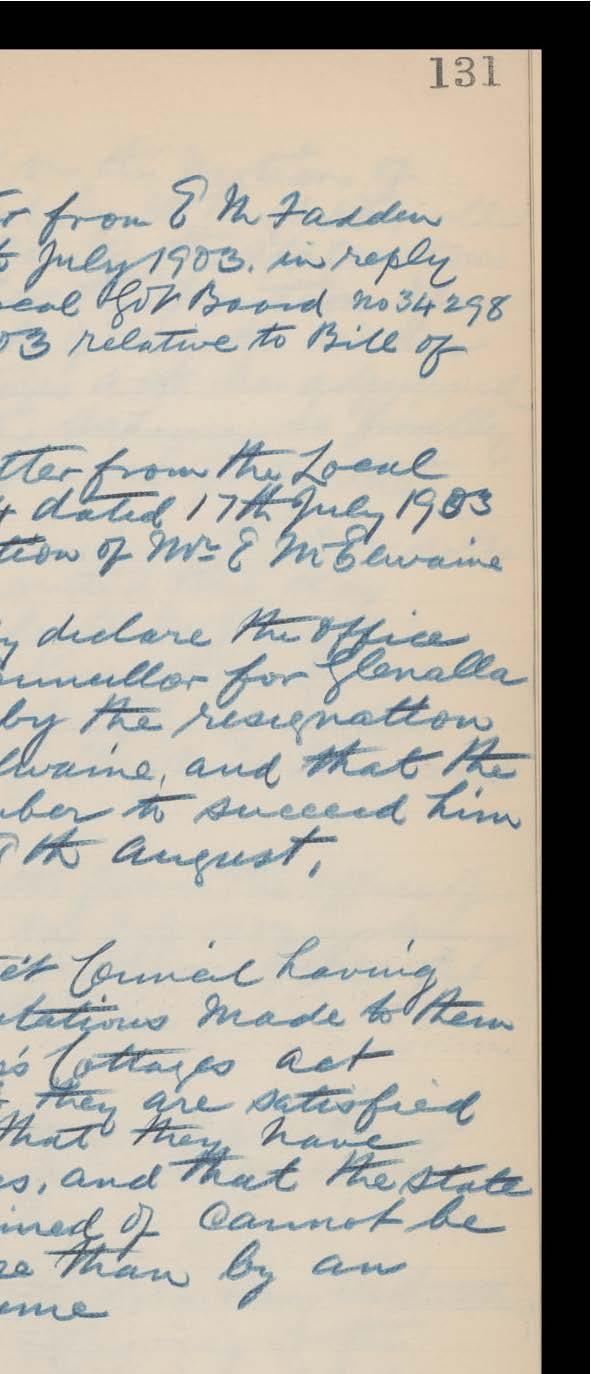 131
from E McFadden
July 1903. in reply
Local Govt Board no 34298
03 relative to Bill of
tter from the Local
dated 17th July 1903
tion of Mr E McElwaine
y declare the office
ouncillor for Glenalla
by the resignation
lwaine, and that the
mber to succeed him
8th August,
ct Council having
ntations made to them
r's Cottages act
they are satisfied
that they have
s, and that the state
ined of cannot be
se than by an
eme